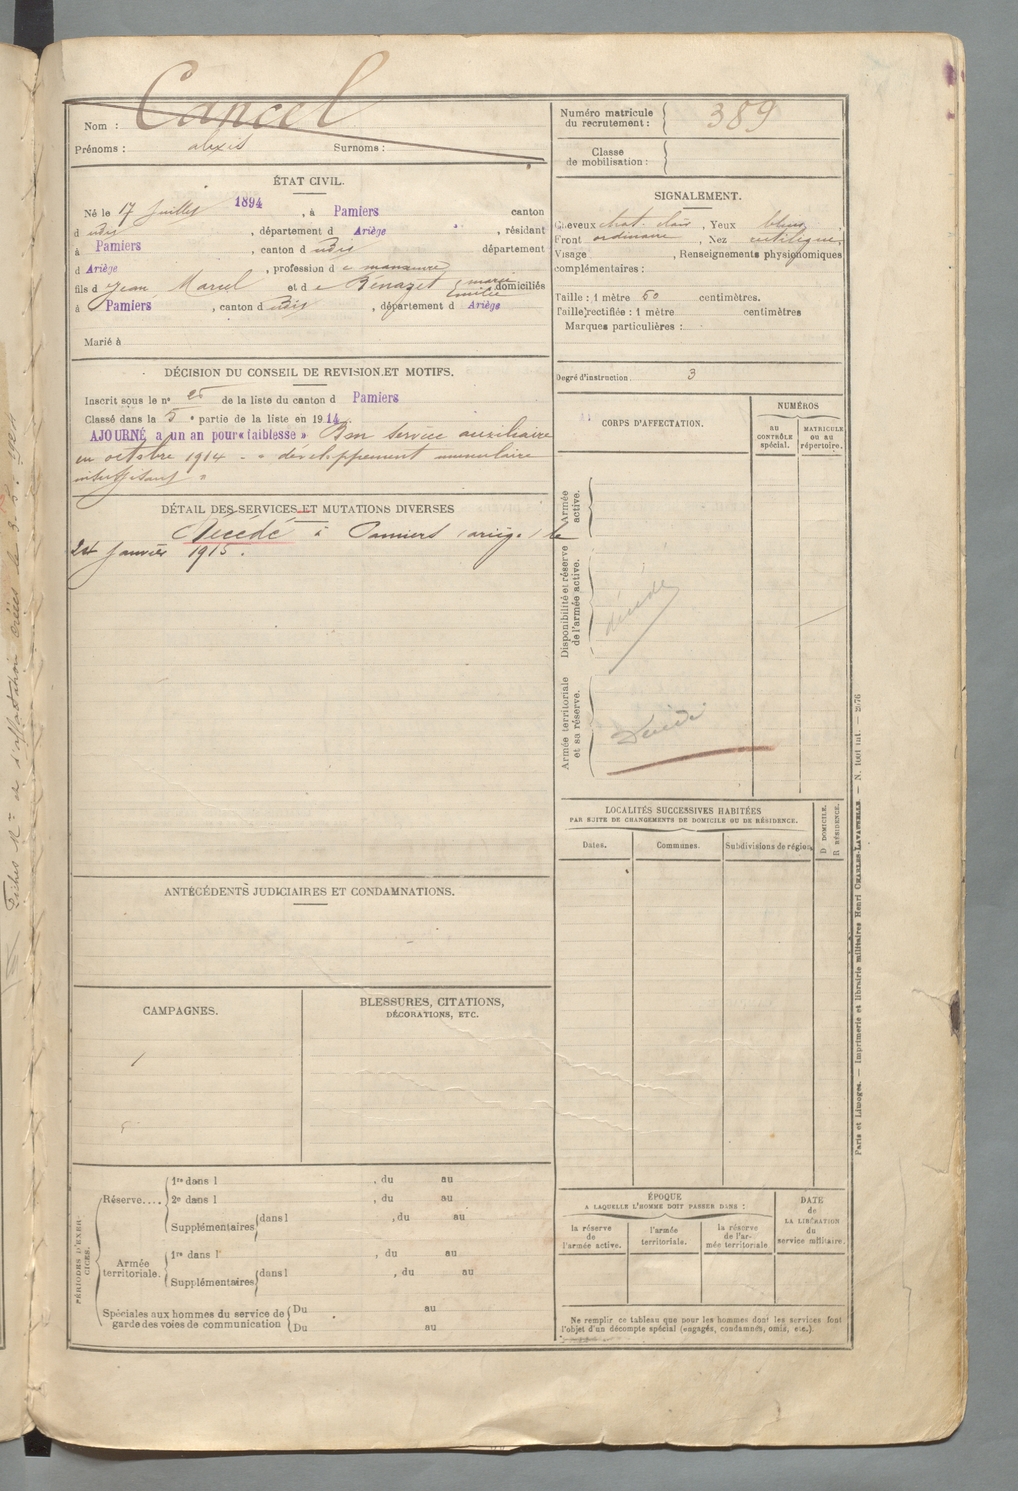 Cancel
Nom :
Prénoms : alexis Surnoms :
Numéro matricule
du recrutement : 389
Classe
de mobilisation :
ÉTAT CIVIL.
Né le 17 Juillet 1894, à Pamiers canton
d udis, département d Ariège, résidant
à Pamiers, canton d udis département
d Ariège, profession d e manœuvre
fils d Jean Marcel et d e Bénazet marie Emilie domiciliés
à Pamiers, canton d udis, département d Ariège
Marié à
SIGNALEMENT.
Cheveux chat. clair, Yeux bleus
Front ordinaire, Nez rectiligne,
Visage , Renseignements physionomiques
complémentaires :
Taille : 1 mètre 50 centimètres.
Taille rectifiée : 1 mètre centimètres
Marques particulières :
Degré d'instruction. 3
DÉCISION DU CONSEIL DE REVISION ET MOTIFS.
Inscrit sous le n° 25 de la liste du canton d Pamiers
Classé dans la 5e partie de la liste en 1914.
AJOURNÉ à un an pour « faiblesse » Bon service auxiliaire
en octobre 1914 - « développement musculaire
insuffisant »
DÉTAIL DES SERVICES ET MUTATIONS DIVERSES
Décédé à Pamiers (ariège) le
24 Janvier 1915.
CORPS D'AFFECTATION.
NUMÉROS
AU CONTRÔLE spécial.
MATRICULE OU AU répertoire.
Armée active.
Disponibilité et réserve de l'armée active.
décédé
Armée territoriale et sa réserve.
Décédé
LOCALITÉS SUCCESSIVES HABITÉES
PAR SUITE DE CHANGEMENTS DE DOMICILE OU DE RÉSIDENCE.
Dates.
Communes.
Subdivisions de région
D DOMICILE.
R RÉSIDENCE.
ANTÉCÉDENTS JUDICIAIRES ET CONDAMNATIONS.
CAMPAGNES.
BLESSURES, CITATIONS,
DÉCORATIONS, ETC.
PÉRIODES D'EXERCICES.
Réserve....
1re dans l , du au
2e dans l , du au
Supplémentaires dans l , du au
Armée territoriale.
1re dans l' , du au
Supplémentaires dans l , du au
Spéciales aux hommes du service de
garde des voies de communication
Du au
Du au
ÉPOQUE
A LAQUELLE L'HOMME DOIT PASSER DANS :
la réserve de l'armée active.
l'armée territoriale.
la réserve de l'armée territoriale
DATE de LA LIBÉRATION du service militaire.
Ne remplir ce tableau que pour les hommes dont les services font
l'objet d'un décompte spécial (engagés, condamnés, omis, etc.).
Paris et Limoges. — Imprimerie et librairie militaires Henri CHARLES-LAVAUZELLE. — N. 1001 int. — 2876